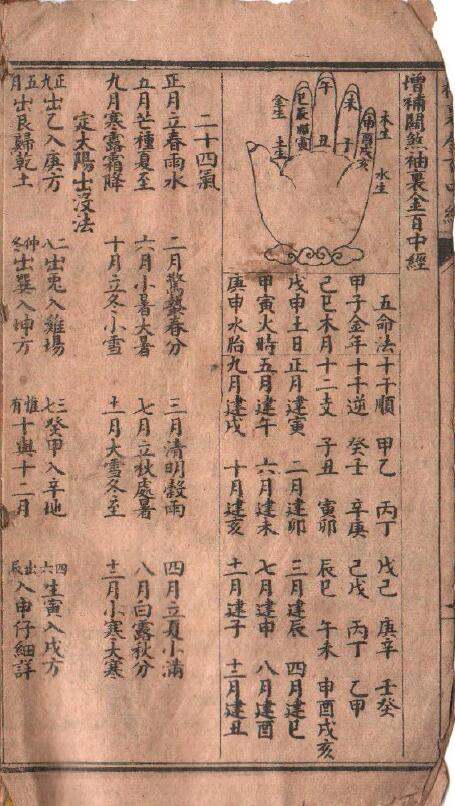 增補關煞袖裏金百中經
午
未
申酉戌亥
巳辰卯寅
丑
子
木生
水生
金生
土生
五命法 十干順 甲乙 丙丁 戊己 庚辛 壬癸
甲子金年 十干逆 癸壬 辛庚 己戊 丙丁 乙甲
己巳木月 十二支 子丑 寅卯 辰巳 午未 申酉戌亥
戊申土日 正月建寅 二月建卯 三月建辰 四月建巳
甲寅火時 五月建午 六月建未 七月建申 八月建酉
庚申水胎 九月建戌 十月建亥 十一月建子 十二月建丑
二十四氣
正月立春雨水 二月驚蟄春分 三月清明穀雨 四月立夏小滿
五月芒種夏至 六月小暑大暑 七月立秋處暑 八月白露秋分
九月寒露霜降 十月立冬小雪 十一月大雪冬至 十二月小寒大寒
定太陽士没法
正九出乙入庚方 二八出兎入雞場 三七發甲入辛地 四六生寅入戌方
五月出艮歸乾土 仲冬出巽入坤方 惟有十與十二月 出辰入申仔細詳